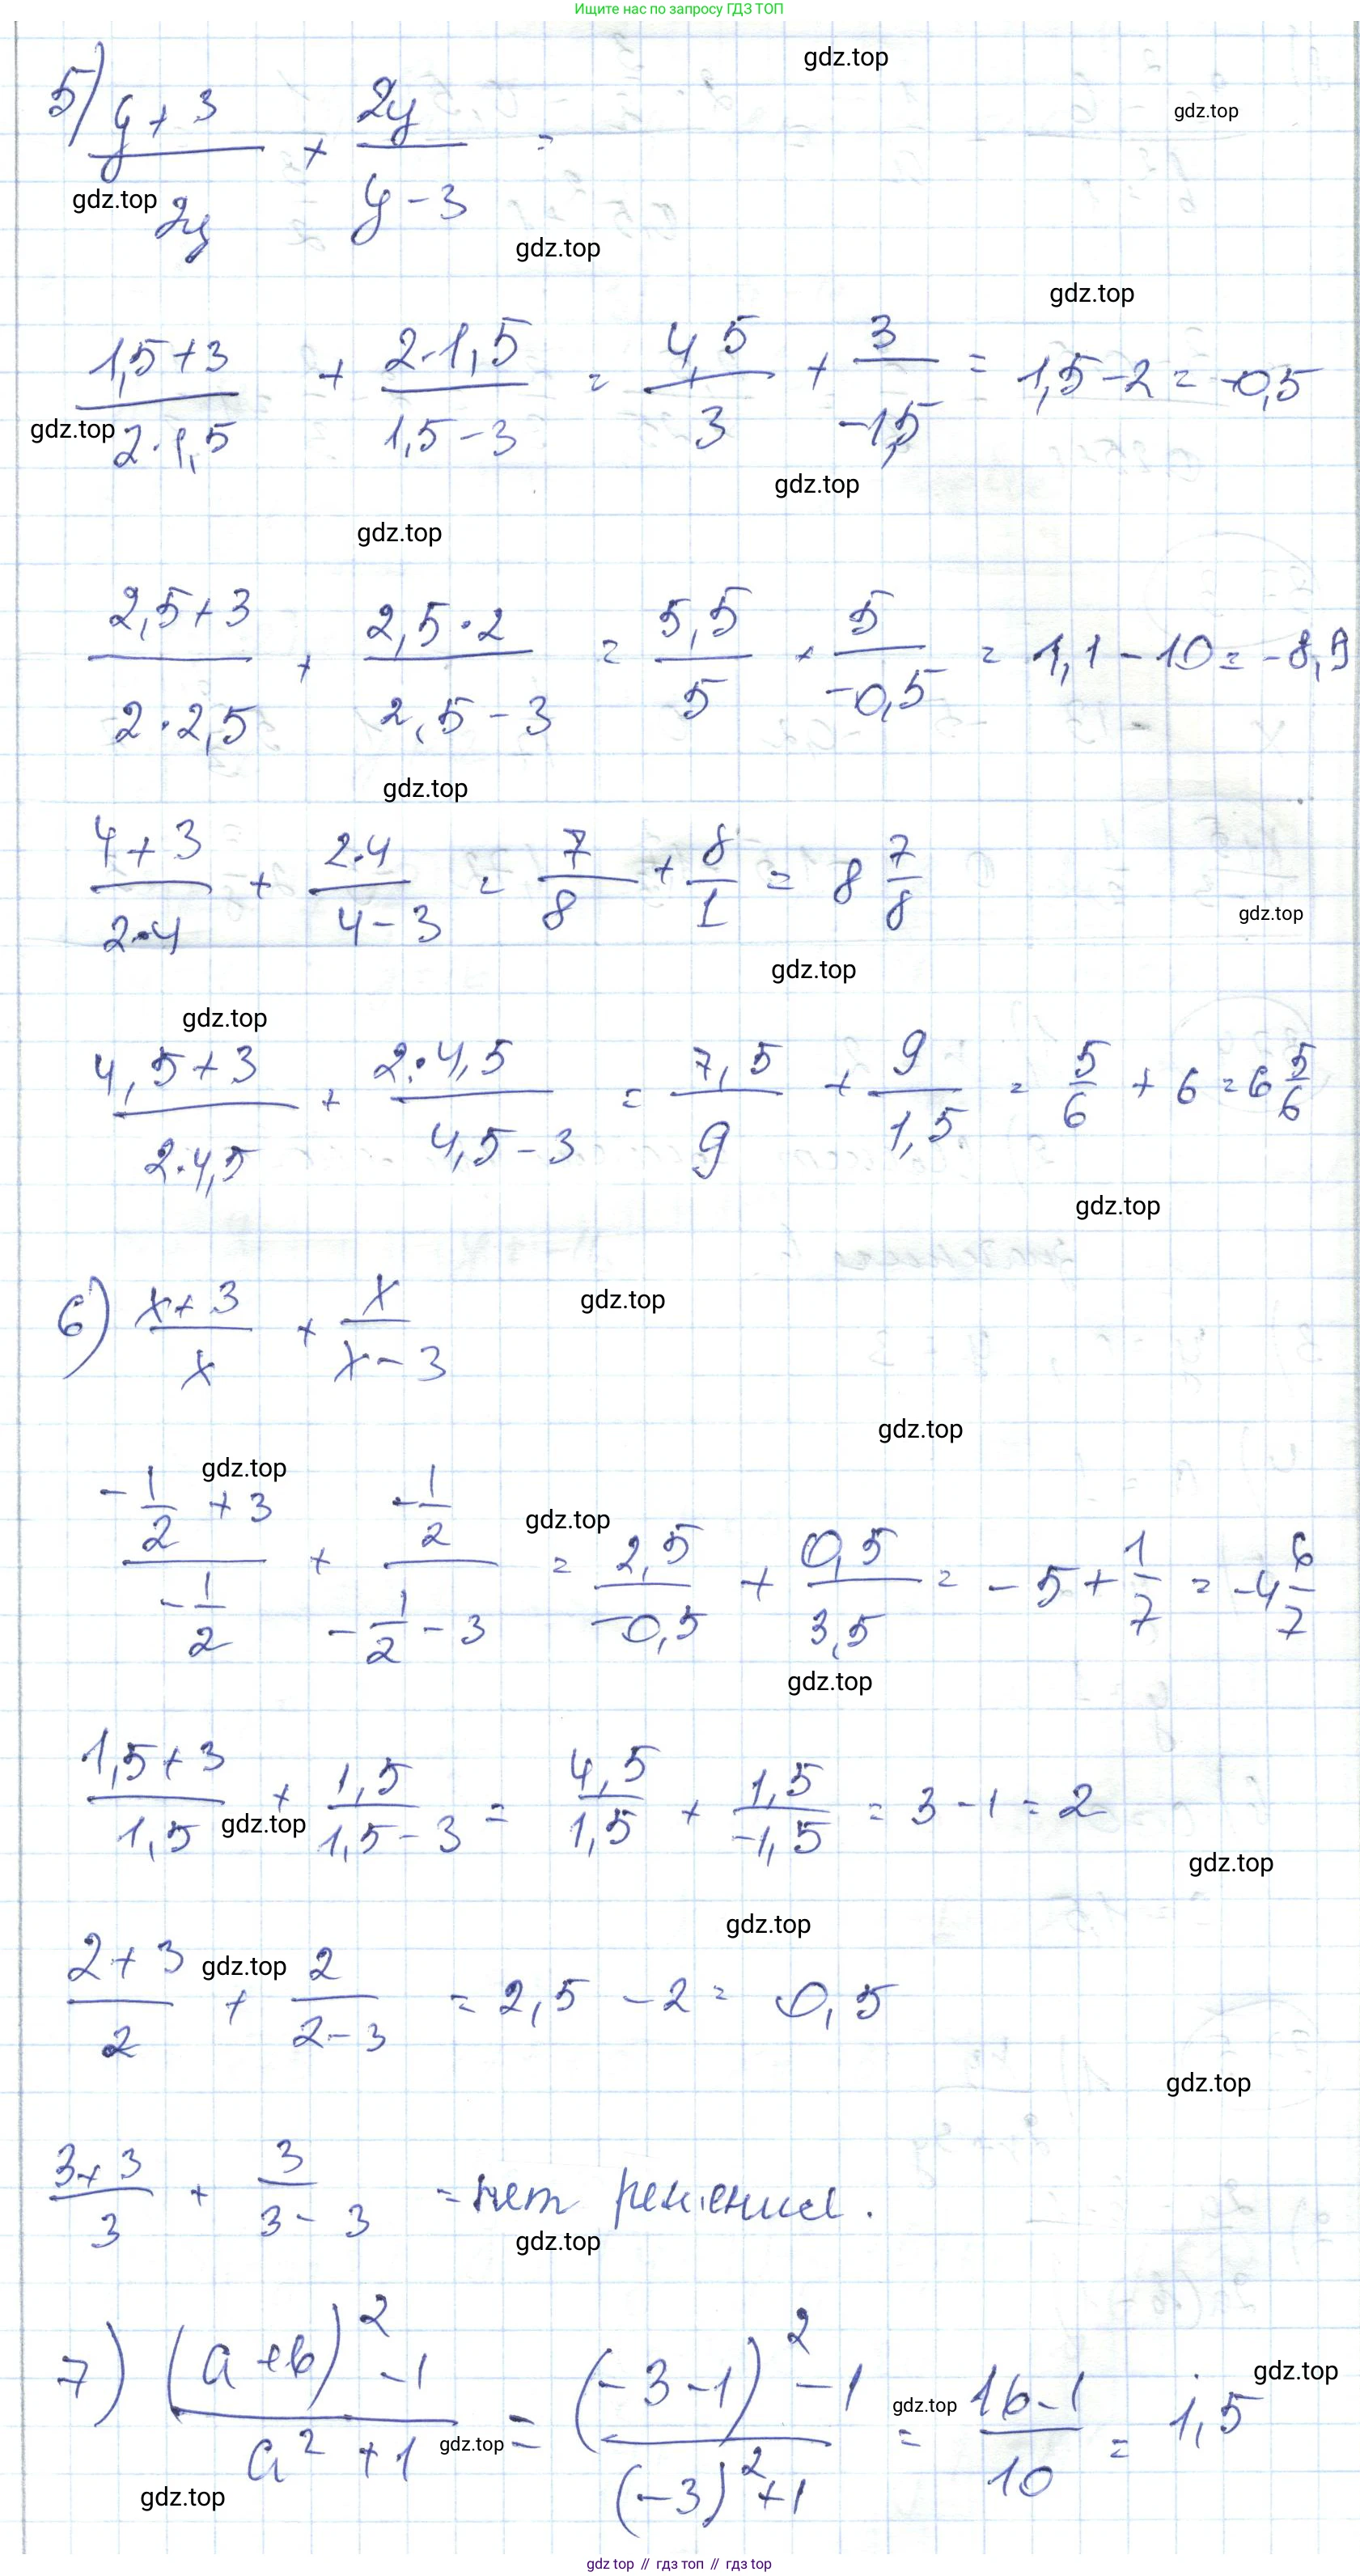 Ищите нас по запросу ГДЗ ТОП
gdz.top
gdz.top
5) (y+3)/(2y) + (2y)/(y-3) =
gdz.top
gdz.top
gdz.top
(1,5+3)/(2·1,5) + (2·1,5)/(1,5-3) = 4,5/3 + 3/(-1,5) = 1,5-2 = -0,5
gdz.top
gdz.top
gdz.top
(2,5+3)/(2·2,5) + (2,5·2)/(2,5-3) = 5,5/5 + 5/(-0,5) = 1,1-10 = -8,9
gdz.top
(4+3)/(2·4) + (2·4)/(4-3) = 7/8 + 8/1 = 8 7/8
gdz.top
gdz.top
gdz.top
(4,5+3)/(2·4,5) + (2·4,5)/(4,5-3) = 7,5/9 + 9/1,5 = 5/6 + 6 = 6 5/6
gdz.top
6) (x+3)/x + x/(x-3)
gdz.top
gdz.top
gdz.top
gdz.top
(-1/2 + 3)/(-1/2) + (-1/2)/(-1/2 - 3) = 2,5/(-0,5) + 0,5/3,5 = -5 + 1/7 = -4 6/7
gdz.top
(1,5+3)/1,5 + 1,5/(1,5-3) = 4,5/1,5 + 1,5/(-1,5) = 3-1 = 2
gdz.top
gdz.top
gdz.top
gdz.top
(2+3)/2 + 2/(2-3) = 2,5 - 2 = 0,5
gdz.top
(3+3)/3 + 3/(3-3) = нет решения.
gdz.top
7) ((a+b)² - 1)/(a² + 1) = ((-3-1)² - 1)/((-3)² + 1) = (16-1)/10 = 1,5
gdz.top
gdz.top
gdz.top
gdz.top
gdz top // гдз топ // гдз top